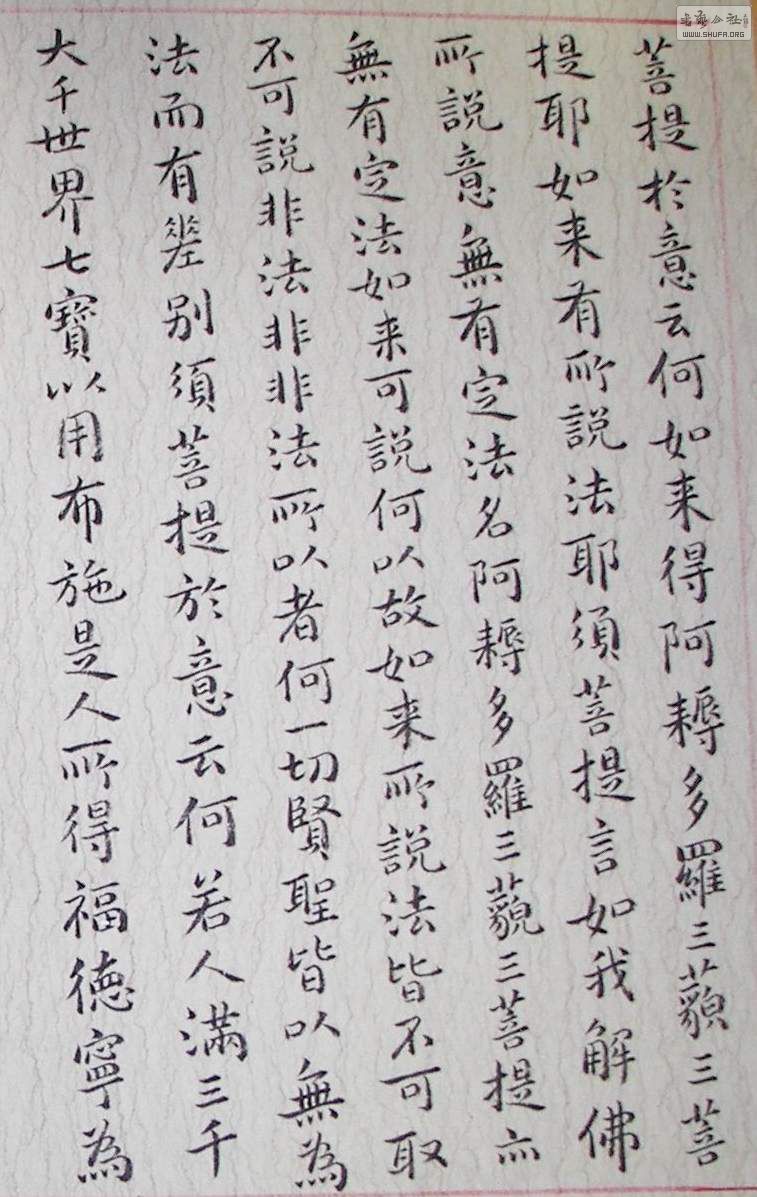 菩提於意云何如来得阿耨多羅三藐三菩
提耶如来有所說法耶須菩提言如我解佛
所說意無有定法名阿耨多羅三藐三菩提亦
無有定法如来可說何以故如来所說法皆不可取
不可說非法非非法所以者何一切賢聖皆以無為
法而有差别須菩提於意云何若人滿三千
大千世界七寶以用布施是人所得福德寧為
WWW.SHUFA.ORG